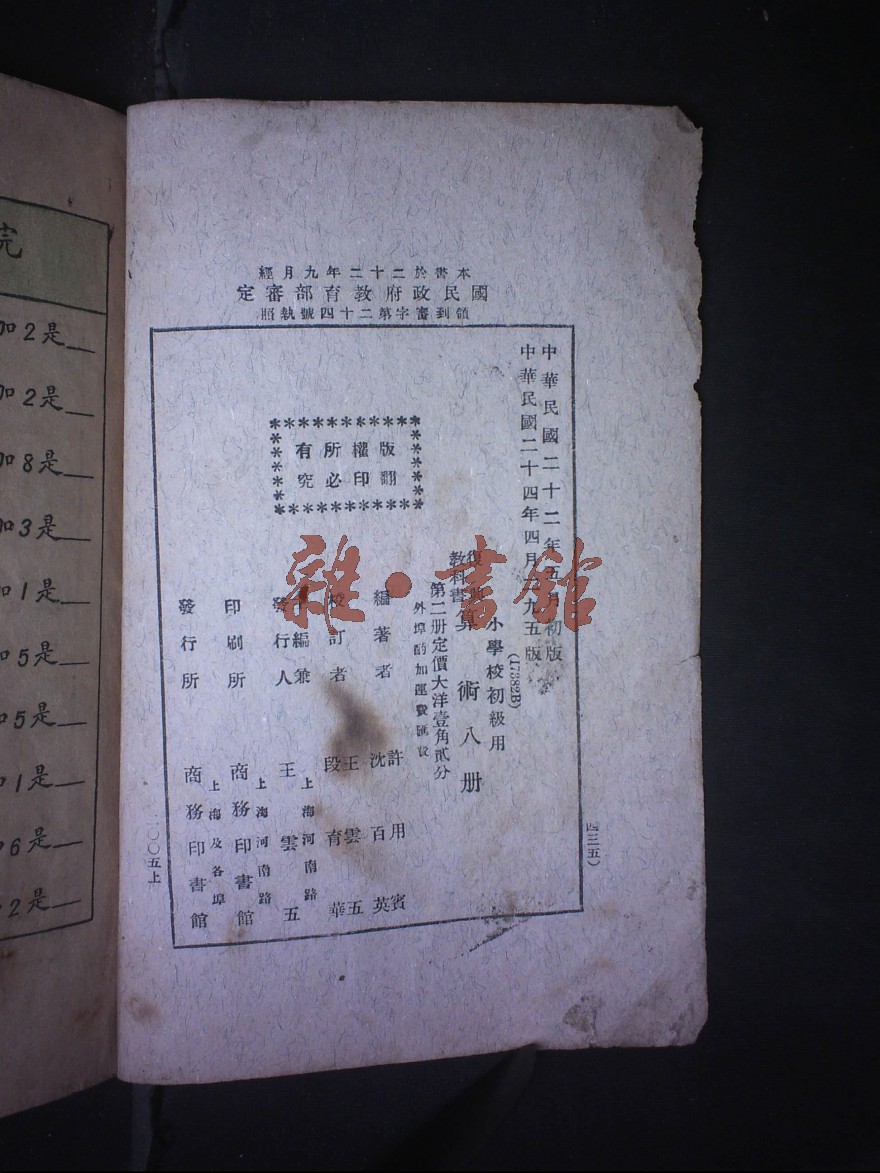 本書於二十二年九月經
國民政府教育部審定
領到審字第二十四號執照
中華民國二十二年五月初版
中華民國二十四年四月一九五版
(17382B)
小學校初級用
復興教科書
算術八册
第二册定價大洋壹角貳分
外埠酌加運費匯費
版權所有
翻印必究
編著者 許用賓 沈百英
校訂者 王雲五 段育華
主編兼發行人 王雲五
上海河南路
印刷所 商務印書館
上海河南路
發行所 商務印書館
上海及各埠
四三五)
一〇〇五上
雜·書館
完
加2是__
加2是__
加8是__
加3是__
加1是__
加5是__
加5是__
加1是__
加6是__
2是__